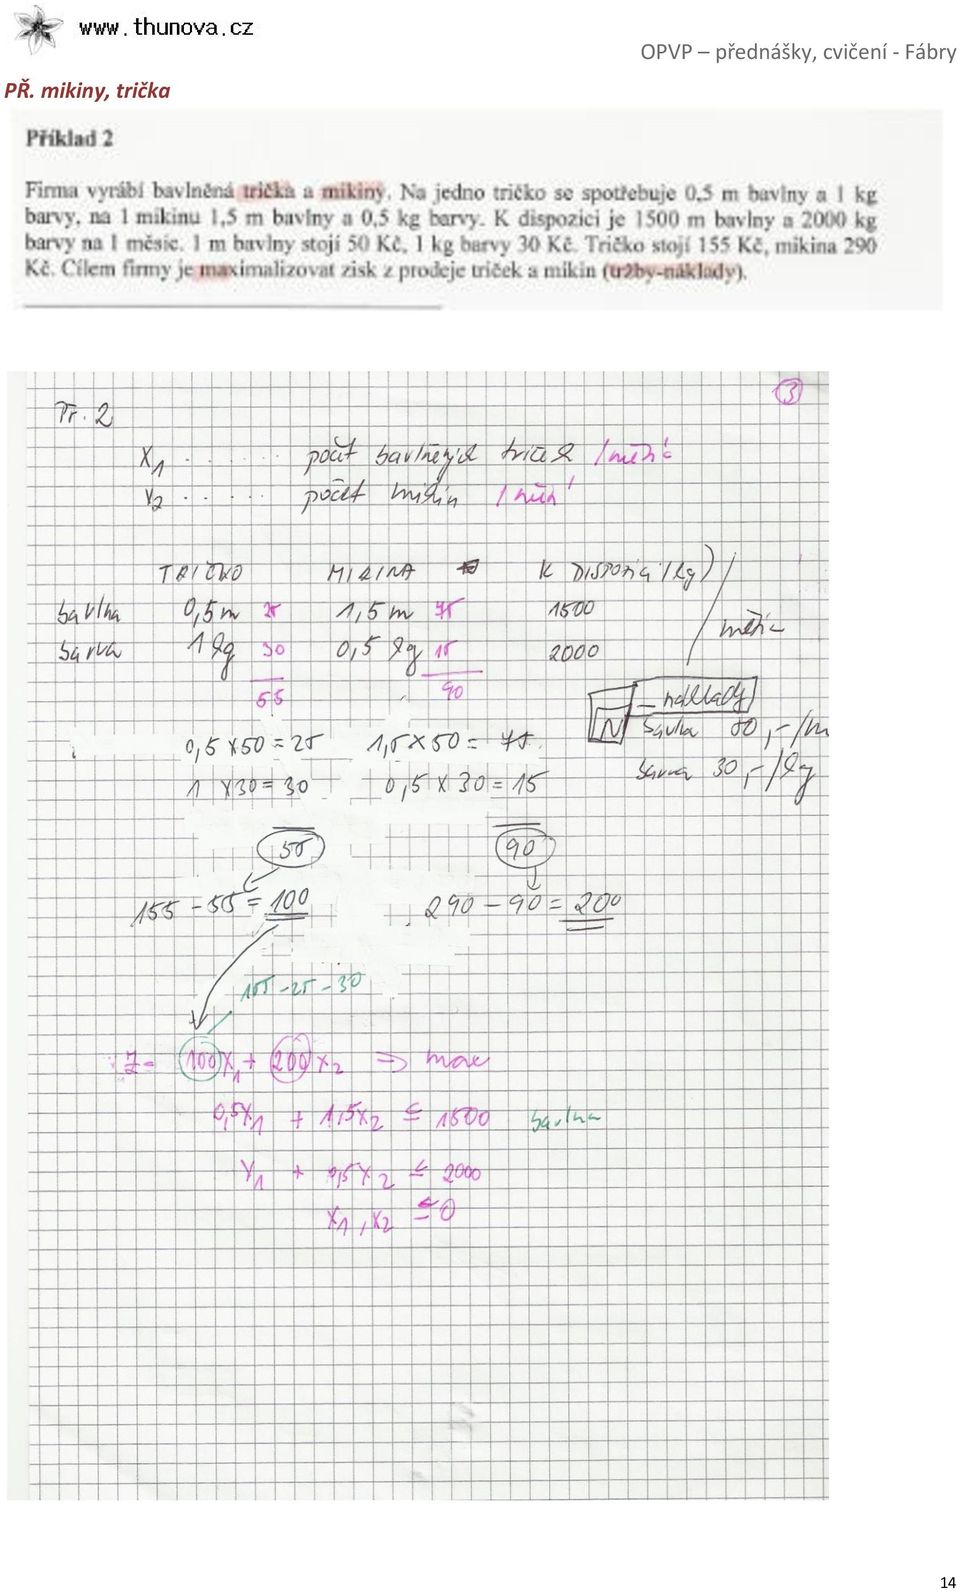 www.thunova.cz
OPVP – přednášky, cvičení - Fábry
PŘ. mikiny, trička
Příklad 2
Firma vyrábí bavlněná trička a mikiny. Na jedno tričko se spotřebuje 0,5 m bavlny a 1 kg
barvy, na 1 mikinu 1,5 m bavlny a 0,5 kg barvy. K dispozici je 1500 m bavlny a 2000 kg
barvy na 1 měsíc. 1 m bavlny stojí 50 Kč, 1 kg barvy 30 Kč. Tričko stojí 155 Kč, mikina 290
Kč. Cílem firmy je maximalizovat zisk z prodeje triček a mikin (tržby-náklady).
Př. 2 3
x1 ...... počet bavlněných triček / měsíc
x2 ...... počet mikin / měsíc
TRIČKO MIKINA K DISPOZICI (kg) /
bavlna 0,5 m 25 1,5 m 75 1500 měsíc
barva 1 kg 30 0,5 kg 15 2000
55 90 = náklady
0,5 x 50 = 25 1,5 x 50 = 75 N bavlna 50,-/m
1 x 30 = 30 0,5 x 30 = 15 barva 30,-/kg
55 90
155 - 55 = 100 290 - 90 = 200
155 - 25 - 30
z = 100x1 + 200x2 => max
0,5x1 + 1,5x2 ≤ 1500 bavlna
x1 + 0,5x2 ≤ 2000
x1, x2 ≤ 0
14